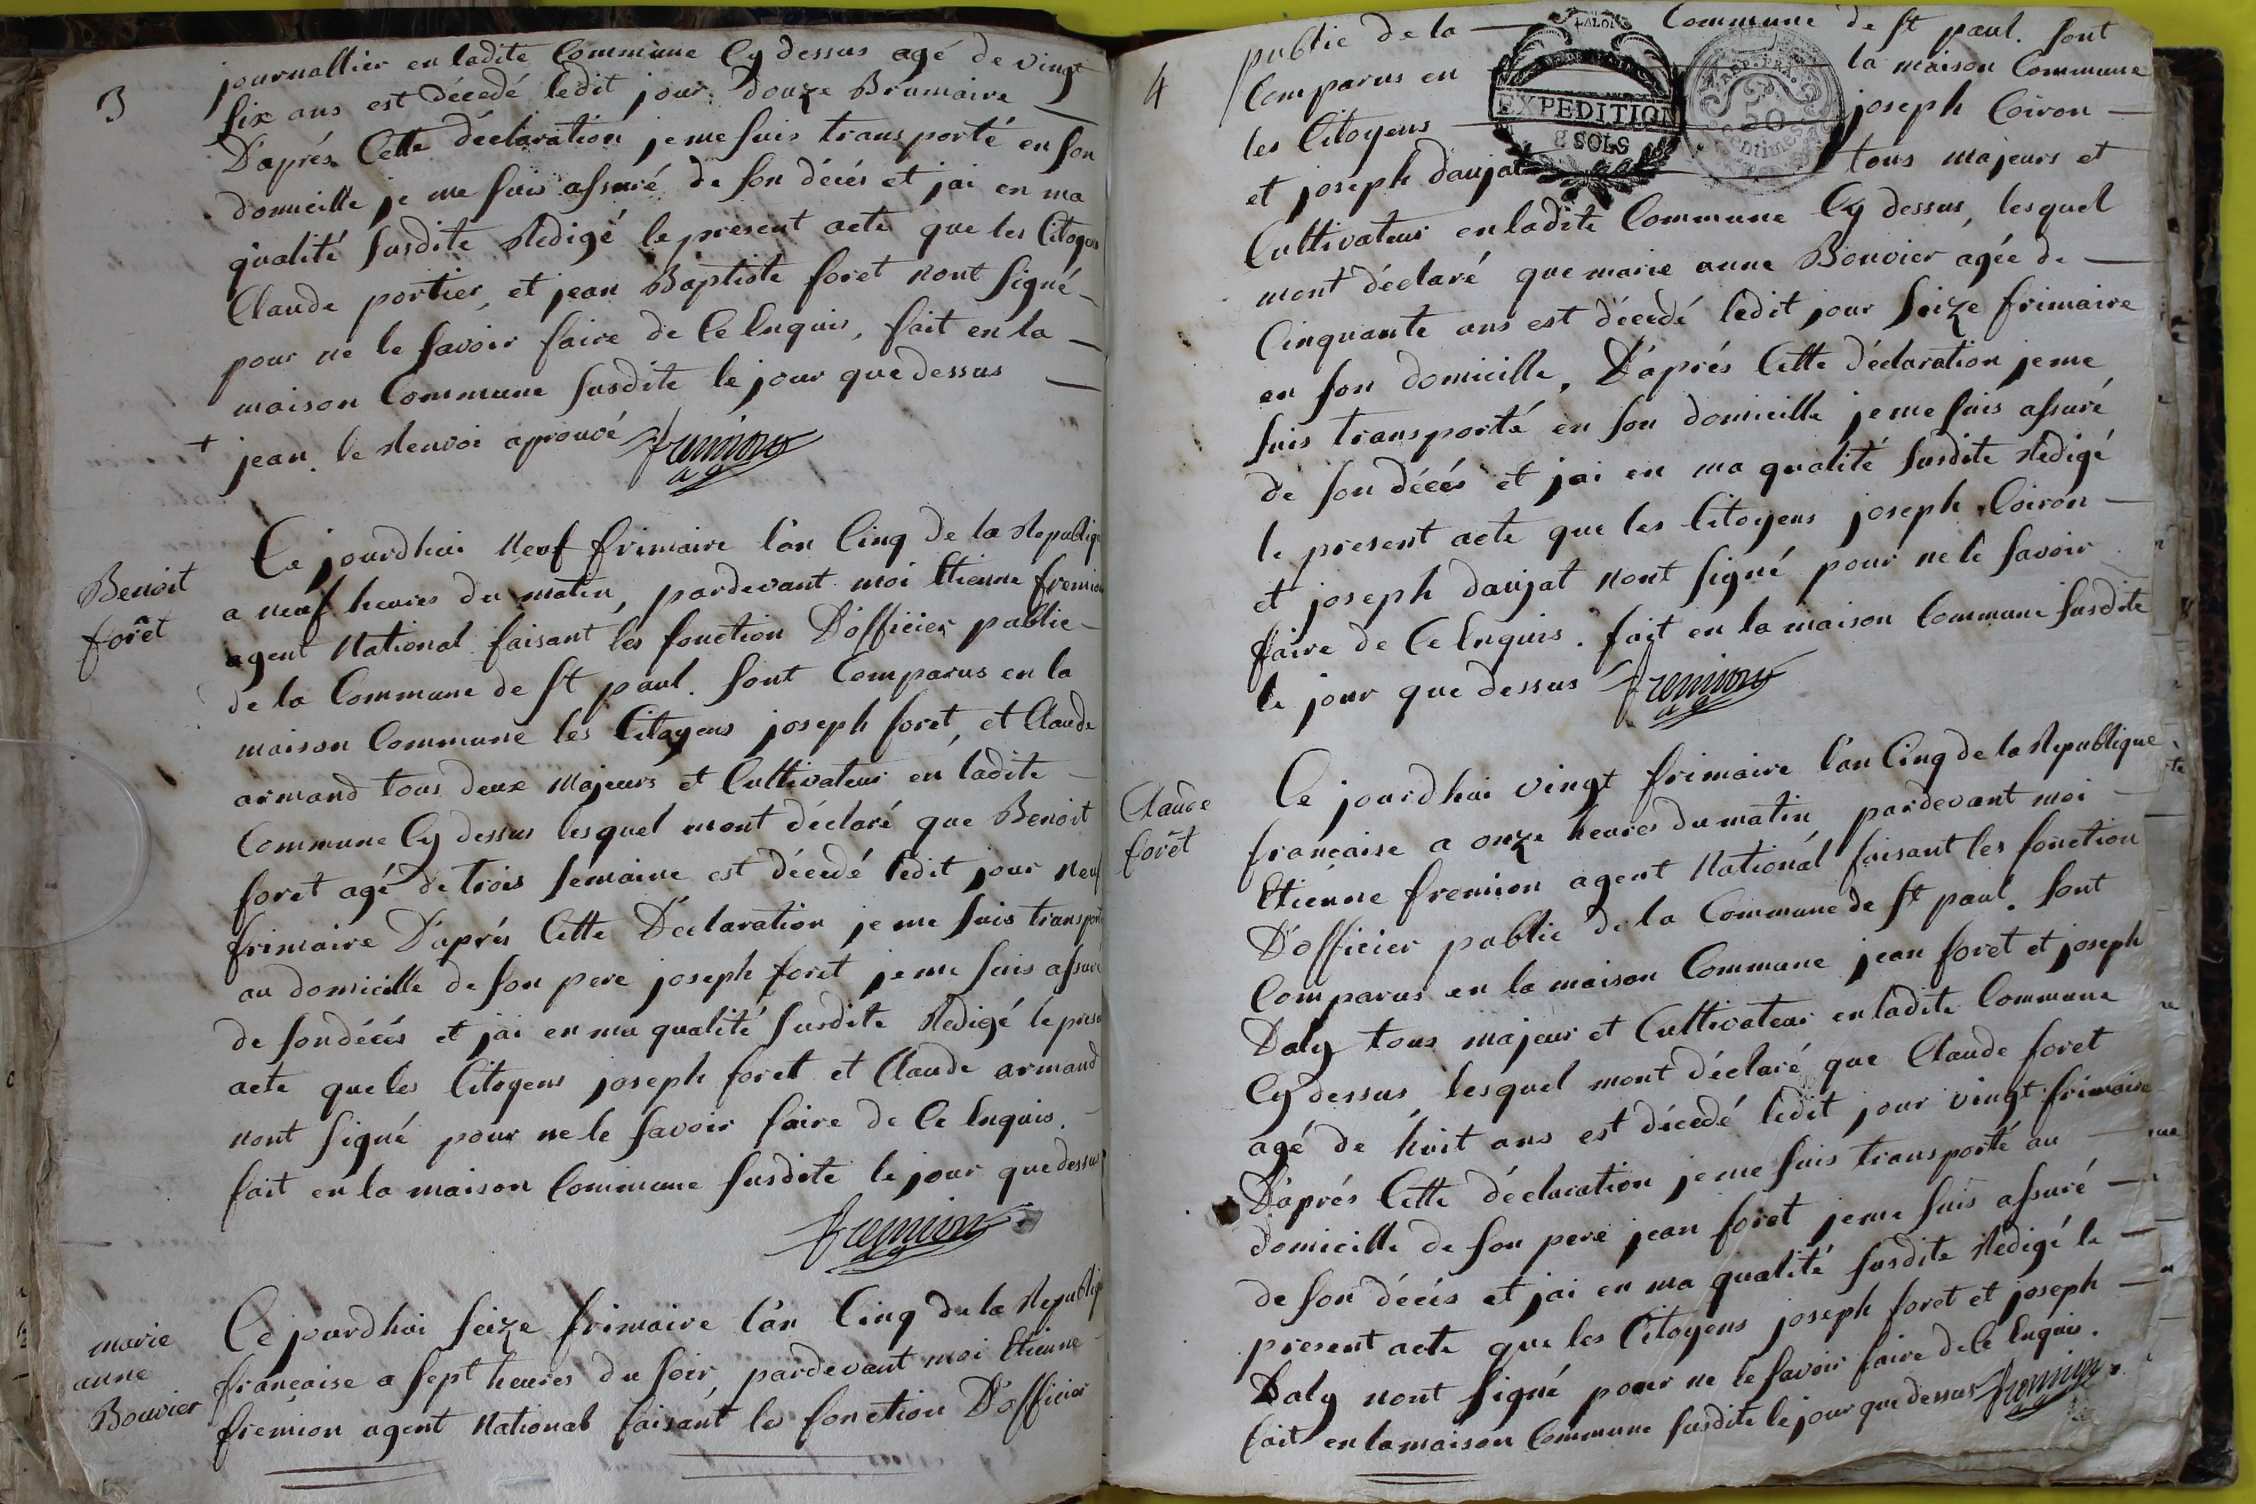 3
journallier en ladite Commune Cy dessus agé de vingt
six ans est décedé ledit jour douze Brumaire
D'aprés Cette déclaration je me suis transporté en son
domicille je me suis assuré de son décés et jai en ma
qualité susdite Redigé le present acte que les Citoyens
Claude portier, et jean Baptiste foret nont signé
pour ne le savoir faire de Ce Enquis, fait en la
maison Commune susdite le jour que dessus
+ jean. le Renvoi aprouvé fremion
a g
Benoit
forêt
Ce jourdhui Neuf frimaire l'an Cinq de la Republiq
a neuf heures du matin, pardevant moi Etienne fremion
agent National faisant les fonction D'officier public
de la Commune de St paul. sont Comparus en la
maison Commune les Citoyens joseph foret, et Claude
armand tous deux Majeurs et Cultivateur en ladite
Commune Cy dessus lesquel mont déclaré que Benoit
foret agé de trois semaine est décedé ledit jour Neuf
frimaire D'aprés Cette Déclaration je me suis transporté
au domicille de son pere joseph foret je me suis assuré
de son décés et jai en ma qualité susdite Redigé le present
acte que les Citoyens joseph foret et Claude armand
nont signé pour ne le savoir faire de Ce Enquis.
fait en la maison Commune susdite le jour que dessus
fremion
a g
marie
anne
Bouvier
Ce jourdhui seize frimaire l'an Cinq de la Republiq
francaise a sept heures du soir pardevant moi Etienne
fremion agent National faisant les fonction D'officier
4
public de la Commune de St paul. sont
Comparus en la maison Commune
les Citoyens joseph Coiron
et joseph daujat tous majeurs et
Cultivateur en ladite Commune Cy dessus, lesquel
mont déclaré que marie anne Bouvier agée de
Cinquante ans est décedé ledit jour seize frimaire
en son domicille, D'aprés Cette déclaration je me
suis transporté en son domicille je me suis assuré
de son décés et jai en ma qualité susdite Redigé
le present acte que les Citoyens joseph Coiron
et joseph daujat nont signé pour ne le savoir
faire de Ce Enquis. fait en la maison Commune susdite
le jour que dessus fremion
a g
EXPEDITION
8 SOLS
REP. FRA.
50
Centimes
Claude
forêt
Ce jourdhui vingt frimaire l'an Cinq de la Republique
francaise a onze heures du matin pardevant moi
Etienne fremion agent National faisant les fonction
D'officier public de la Commune de St paul. sont
Comparus en la maison Commune jean foret et joseph
Daly tous majeur et Cultivateur en ladite Commune
Cy dessus lesquel mont déclaré que Claude foret
agé de huit ans est décedé ledit jour vingt frimaire
D'aprés Cette déclaration je me suis transporté au
domicille de son pere jean foret je me suis assuré
de son décés et jai en ma qualité susdite Redigé le
present acte que les Citoyens joseph foret et joseph
Daly nont signé pour ne le savoir faire de Ce Enquis.
fait en la maison Commune susdite le jour que dessus fremion
a g